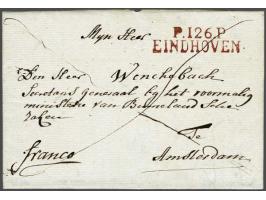 P.126.P.
EINDHOVEN.
Myn Heer
Den Heer Wenckebach
Secretaris Generaal by het voormalig
ministerie van Binnelandsche
Zaken
Te
franco Amsterdam